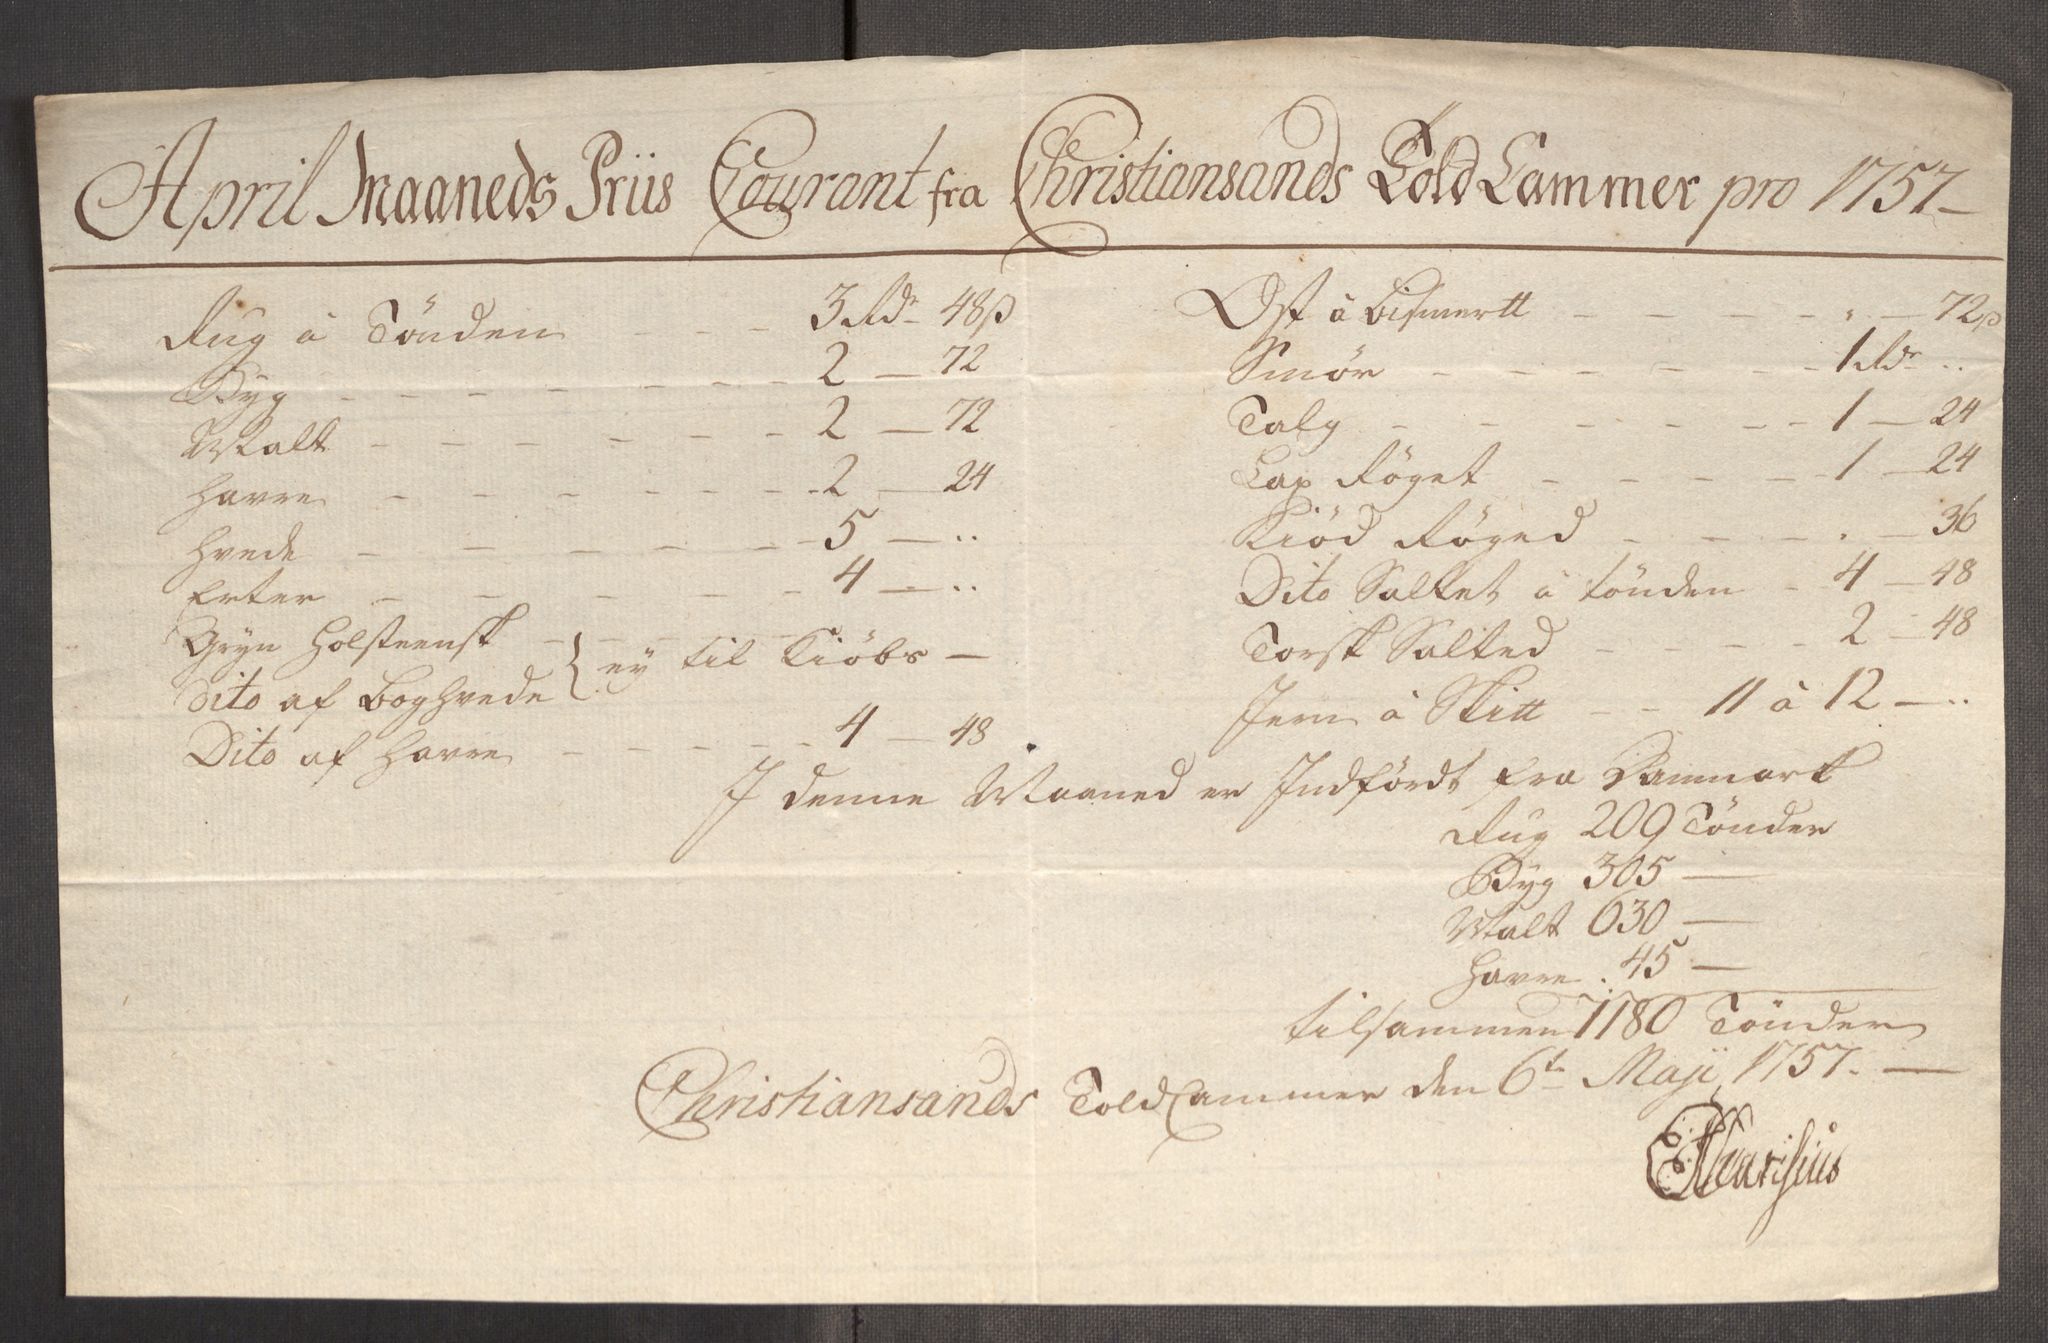 April Maaneds Priis Courant fra Christiansands Told Cammer pro 1757
Rug à Tönden - - 3 Rdr 48 ß
Byg - - - - - - - 2 — 72
Malt - - - - - - - 2 — 72
Havre - - - - - - - 2 — 24
Hvede - - - - - - 5 — ..
Erter - - - - - - 4 — ..
Gryn Holsteensk - - - - -
Dito af Boghvede } ey til Kiöbs —
Dito af Havre - - - - - 4 — 48
Ost à Bismertt - - - - - . — 72 ß
Smör - - - - - - 1 Rdr ..
Talg - - - - - - 1 — 24
Lax Röget - - - - - 1 — 24
Kiöd Röged - - - - . — 36
Dito Saltet à tönden - 4 — 48
Torsk Salted - - - - 2 — 48
Jern à Skitt - - 11 à 12 — ..
I denne Maaned er Indfördt fra Danmark
Rug 209 Tönder
Byg 305 —
Malt 630 —
Havre . 45 —
tilsammen 1180 Tönder
Christiansands Told Cammer den 6te Maji 1757. —